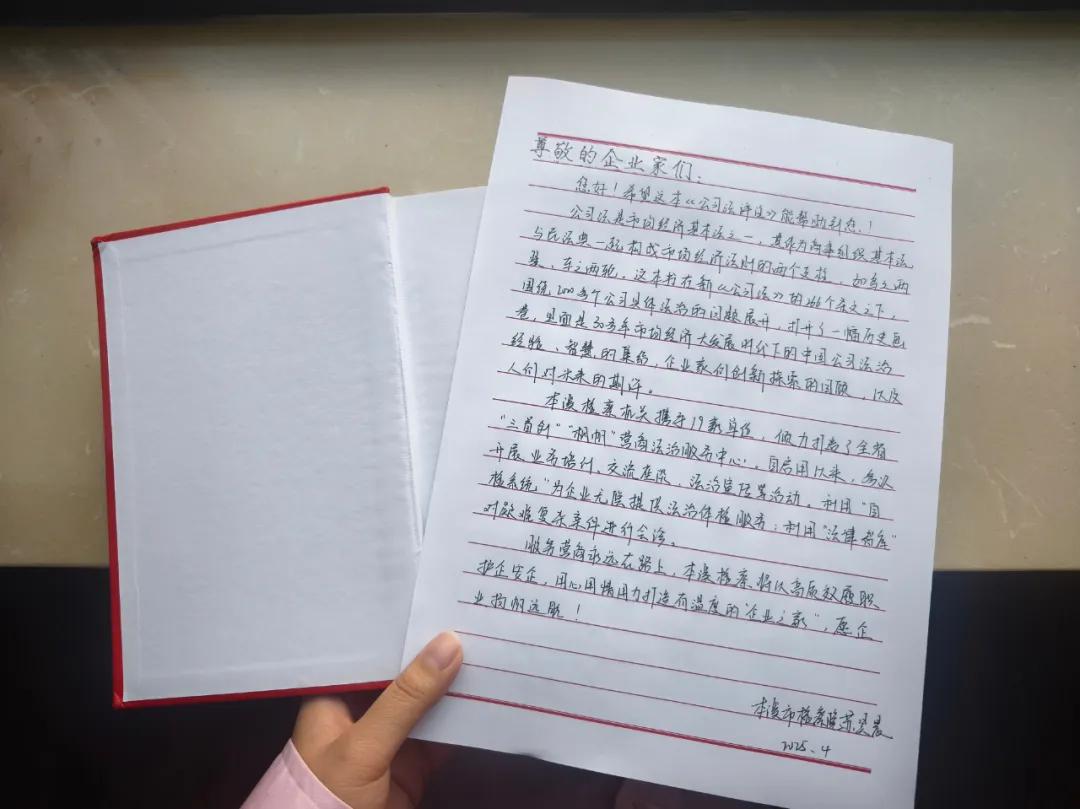 尊敬的企业家们：
您好！希望这本《公司法评注》能帮助到您！
公司法是市场经济基本法之一，其作为商事组织基本法
与民法典一起构成市场经济法则的两个支柱，如鸟之两
翼，车之两轮。这本书在新《公司法》的266个条文之下，
围绕200多个公司具体法治的问题展开，打开了一幅历史画
卷，里面是30多年市场经济大发展时代下的中国公司法治
经验、智慧的集结，企业家们创新探索的回顾，以及
人们对未来的期许。
本溪检察机关携手19家单位，倾力打造了全省
“三首创”“桐帆”营商法治服务中心，自启用以来，多次
开展业务培训、交流座谈、法治宣传等活动。利用“自
检系统”为企业无偿提供法治体检服务；利用“法律智库”
对疑难复杂案件进行会诊。
服务营商永远在路上，本溪检察将以高质效履职
护企安企，用心用情用力打造有温度的“企业之家”，愿企
业扬帆远航！
本溪市检察院
2025.4